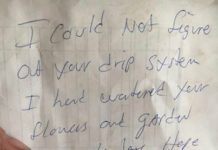 I Could Not figure
out your drip system
I have watered your
flowers and garden
Hope